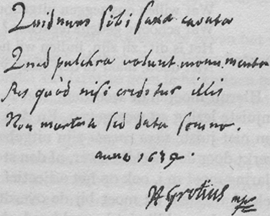 Quid nunc sibi saxa cavata
Quid pulchra volunt monumenta
Res quòd nisi creditur illis
Non mortua sed data somno.
anno 1639.
HGrotius